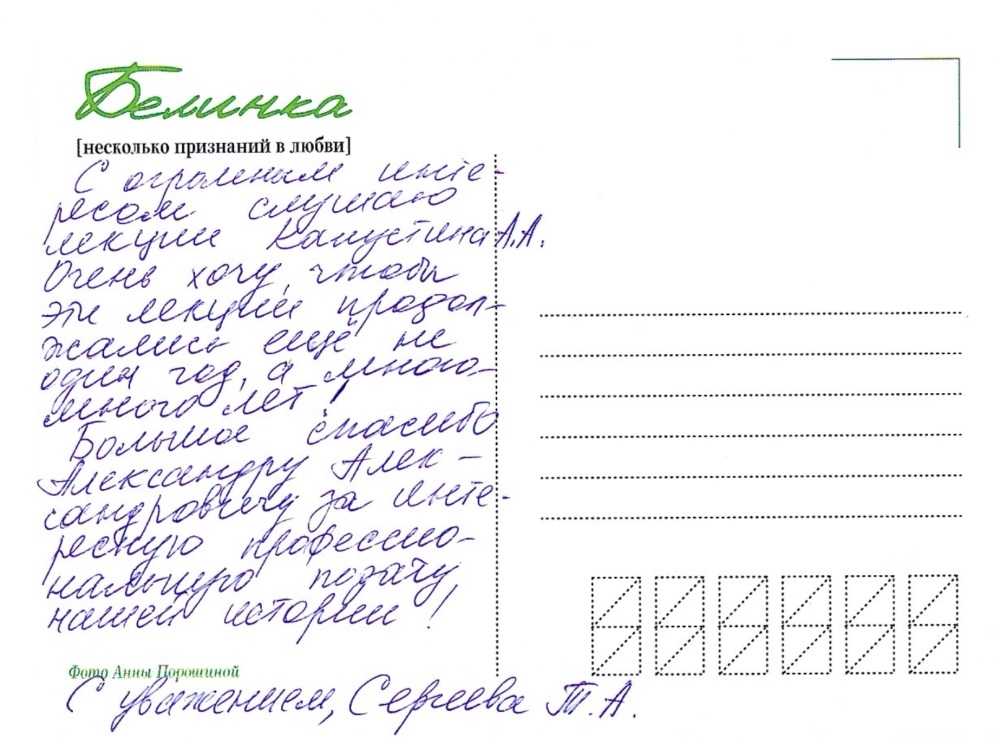 Белинка
[несколько признаний в любви]
С огромным инте-
ресом слушаю
лекции Капустина А.А.
Очень хочу, чтобы
эти лекции продол-
жались ещё не
один год, а много-
много лет!
Большое спасибо
Александру Алек-
сандровичу за инте-
ресную профессио-
нальную подачу
нашей истории!
Фото Анны Порошиной
С уважением, Сергеева Т.А.